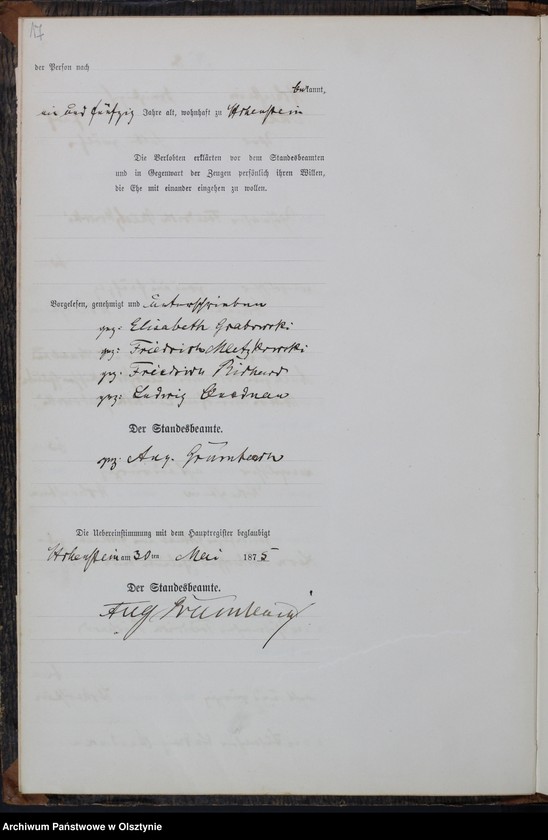 17
der Person nach
bekannt,
ein und fünfzig Jahre alt, wohnhaft zu Hohenstein
Die Verlobten erklärten vor dem Standesbeamten
und in Gegenwart der Zeugen persönlich ihren Willen,
die Ehe mit einander eingehen zu wollen.
Vorgelesen, genehmigt und unterschrieben
gez: Elisabeth Grabowski
gez: Friedrich Metzkowski
gez: Friedrich
gez: Ludwig
Der Standesbeamte.
gez: Aug.
Die Uebereinstimmung mit dem Hauptregister beglaubigt
Hohenstein am 30 ten Mai 1875
Der Standesbeamte.
Aug
Archiwum Państwowe w Olsztynie